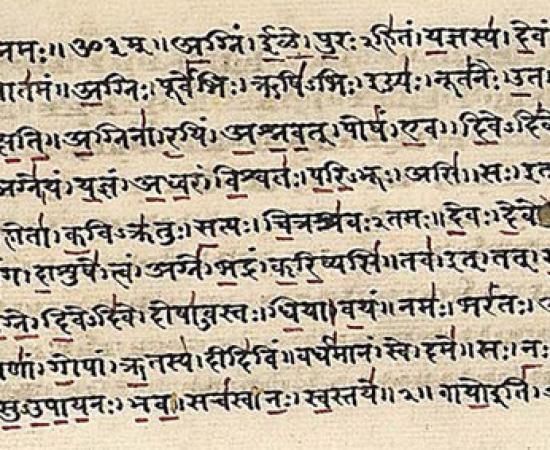 नमः॥ॐ३म्॥अ॒ग्निं।ई॒ळे॒।पु॒रःऽहि॑तं।य॒ज्ञस्य॑।दे॒वं
तमं॥अ॒ग्निः।पूर्वे॑भिः।ऋषि॑ऽभिः।ईड्यः॑।नूत॑नैः।उ॒त
क्ष॒ति॒॥अ॒ग्निना॑।र॒यिं।अ॒श्न॒व॒त्।पोषं॑।ए॒व।दि॒वेऽदि॑वे
अग्ने॑।यं।य॒ज्ञं।अ॒ध्व॒रं।वि॒श्वतः॑।प॒रि॒ऽभूः।असि॑॥सः।इत्
होता॑।क॒विऽक्र॑तुः।स॒त्यः।चि॒त्रश्र॑वःऽतमः॥दे॒वः।दे॒वे
दा॒शुषे॑।त्वं।अग्ने॑।भ॒द्रं।क॒रि॒ष्यसि॑॥तव॑।इत्।तत्।स
ग्ने॒।दि॒वेऽदि॑वे।दोषा॑ऽवस्तः।धि॒या।व॒यं॥नमः॑।भर॑न्तः।
णां॑।गो॒पां।ऋ॒तस्य॑।दीदि॑विं॥वर्ध॑मानं।स्वे।दमे॑॥सः।नः॒
सु॒ऽउ॒पा॒य॒नः।भ॒व॒॥सच॑स्व।नः॒।स्व॒स्तये॑॥२॥वायो॒इति॑।